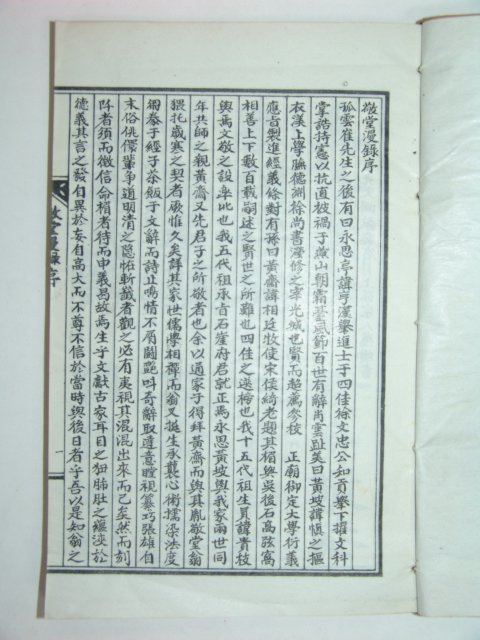 敬堂漫錄序
孤雲崔先生之後有曰永思亭諱亨漢擧進士于四佳徐文忠公知貢擧下擢文科
掌誥持憲以抗直被禍于燕山朝霜臺風節百世有辭肖雲趾美曰黃坡諱愼之摳
衣漢上學無德淵徐尙書瀅修之宰光城也賢而起薦參校 正廟御定大學衍義
應旨製進經義條對有孫曰黃齋諱相廷牧使宋倚綺老題其楣與吳後石高弦窩
相善上下數百載嗣述之賢世之所難也四佳之選掄也我十五代祖生員諱貴枝
與焉文敬之設享此也我五代祖承旨石崖府君就正焉永思黃坡與我家兩世同
年共師之親黃齋又先君子之所敬者也余以通家子得拜黃齋而與其胤敬堂翁
猥托歲寒之契者厥惟久矣諱其家世儒學相禪而翁又挺生承襲心術擩染法度
綢繆于經子茶飯于文辭而詩止鳴情不屑鬪艶呌奇辭取達意瞠視纂巧張雄自
末俗佻儇輩爭道明清之險怪斬巇者觀之必有夷視其混混出來而已矣然而刻
時者須而徵信命楣者待而申義曷故焉生乎文獻古家耳目之狃肺肚之蘊浹於
德義其言之發自異於妄自高大而不尊不信於當時與後日者乎吾以是知翁之
敬堂漫錄序
一